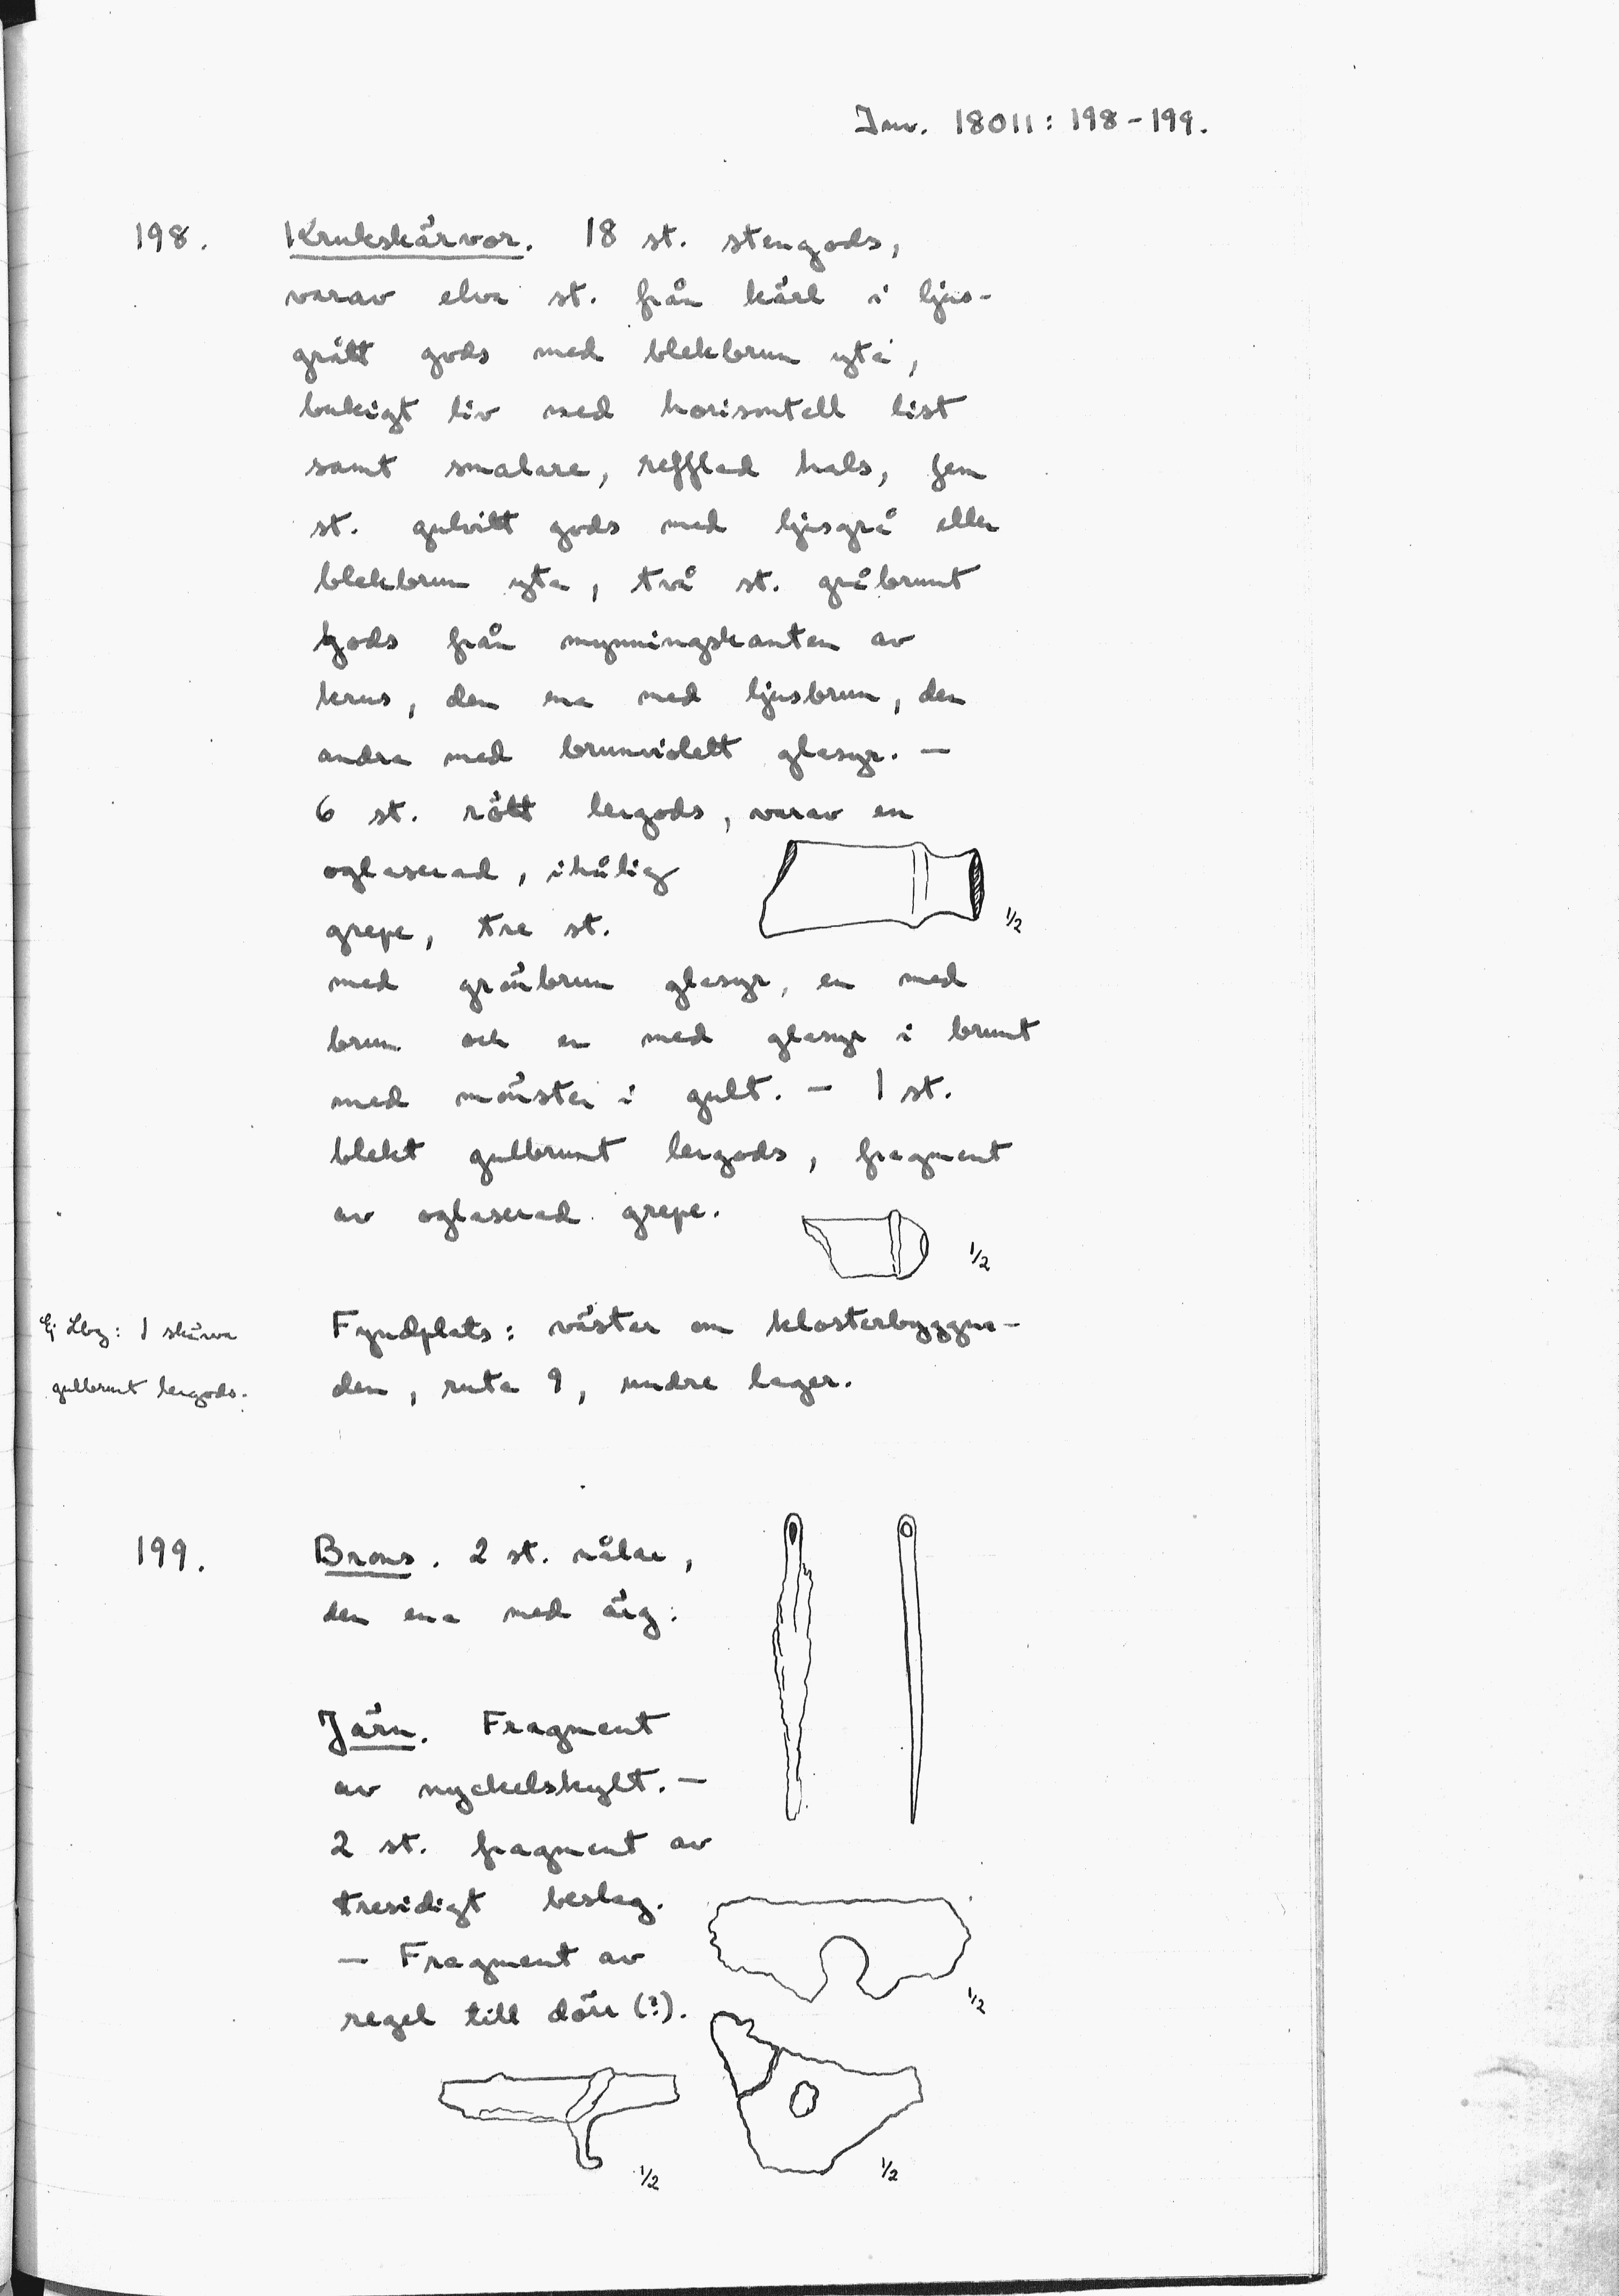 Inv. 18011: 198-199.
198. Krukskärvor. 18 st. stengods,
varav elva st. från kärl i ljus-
grått gods med blekbrun yta,
bukigt liv med horisontell list
samt smalare, refflad hals, fem
st. gulvitt gods med ljusgrå eller
blekbrun yta, två st. gråbrunt
gods från mynningskanten av
krus, den ena med ljusbrun, den
andra med brunviolett glasyr. —
6 st. rött lergods, varav en
oglaserad, ihålig
grepe, tre st.
1/2
med grönbrun glasyr, en med
brun och en med glasyr i brunt
med mönster i gult. — 1 st.
blekt gulbrunt lergods, fragment
av oglaserad grepe.
1/2
Ej Lbg: 1 skärva
gulbrunt lergods.
Fyndplats: väster om klosterbyggna-
den, ruta 9, undre lager.
199. Brons. 2 st. nålar,
den ena med ärg.
Järn. Fragment
av nyckelskylt. —
2 st. fragment av
tresidigt beslag.
— Fragment av
regel till dörr (?).
1/2
1/2
1/2